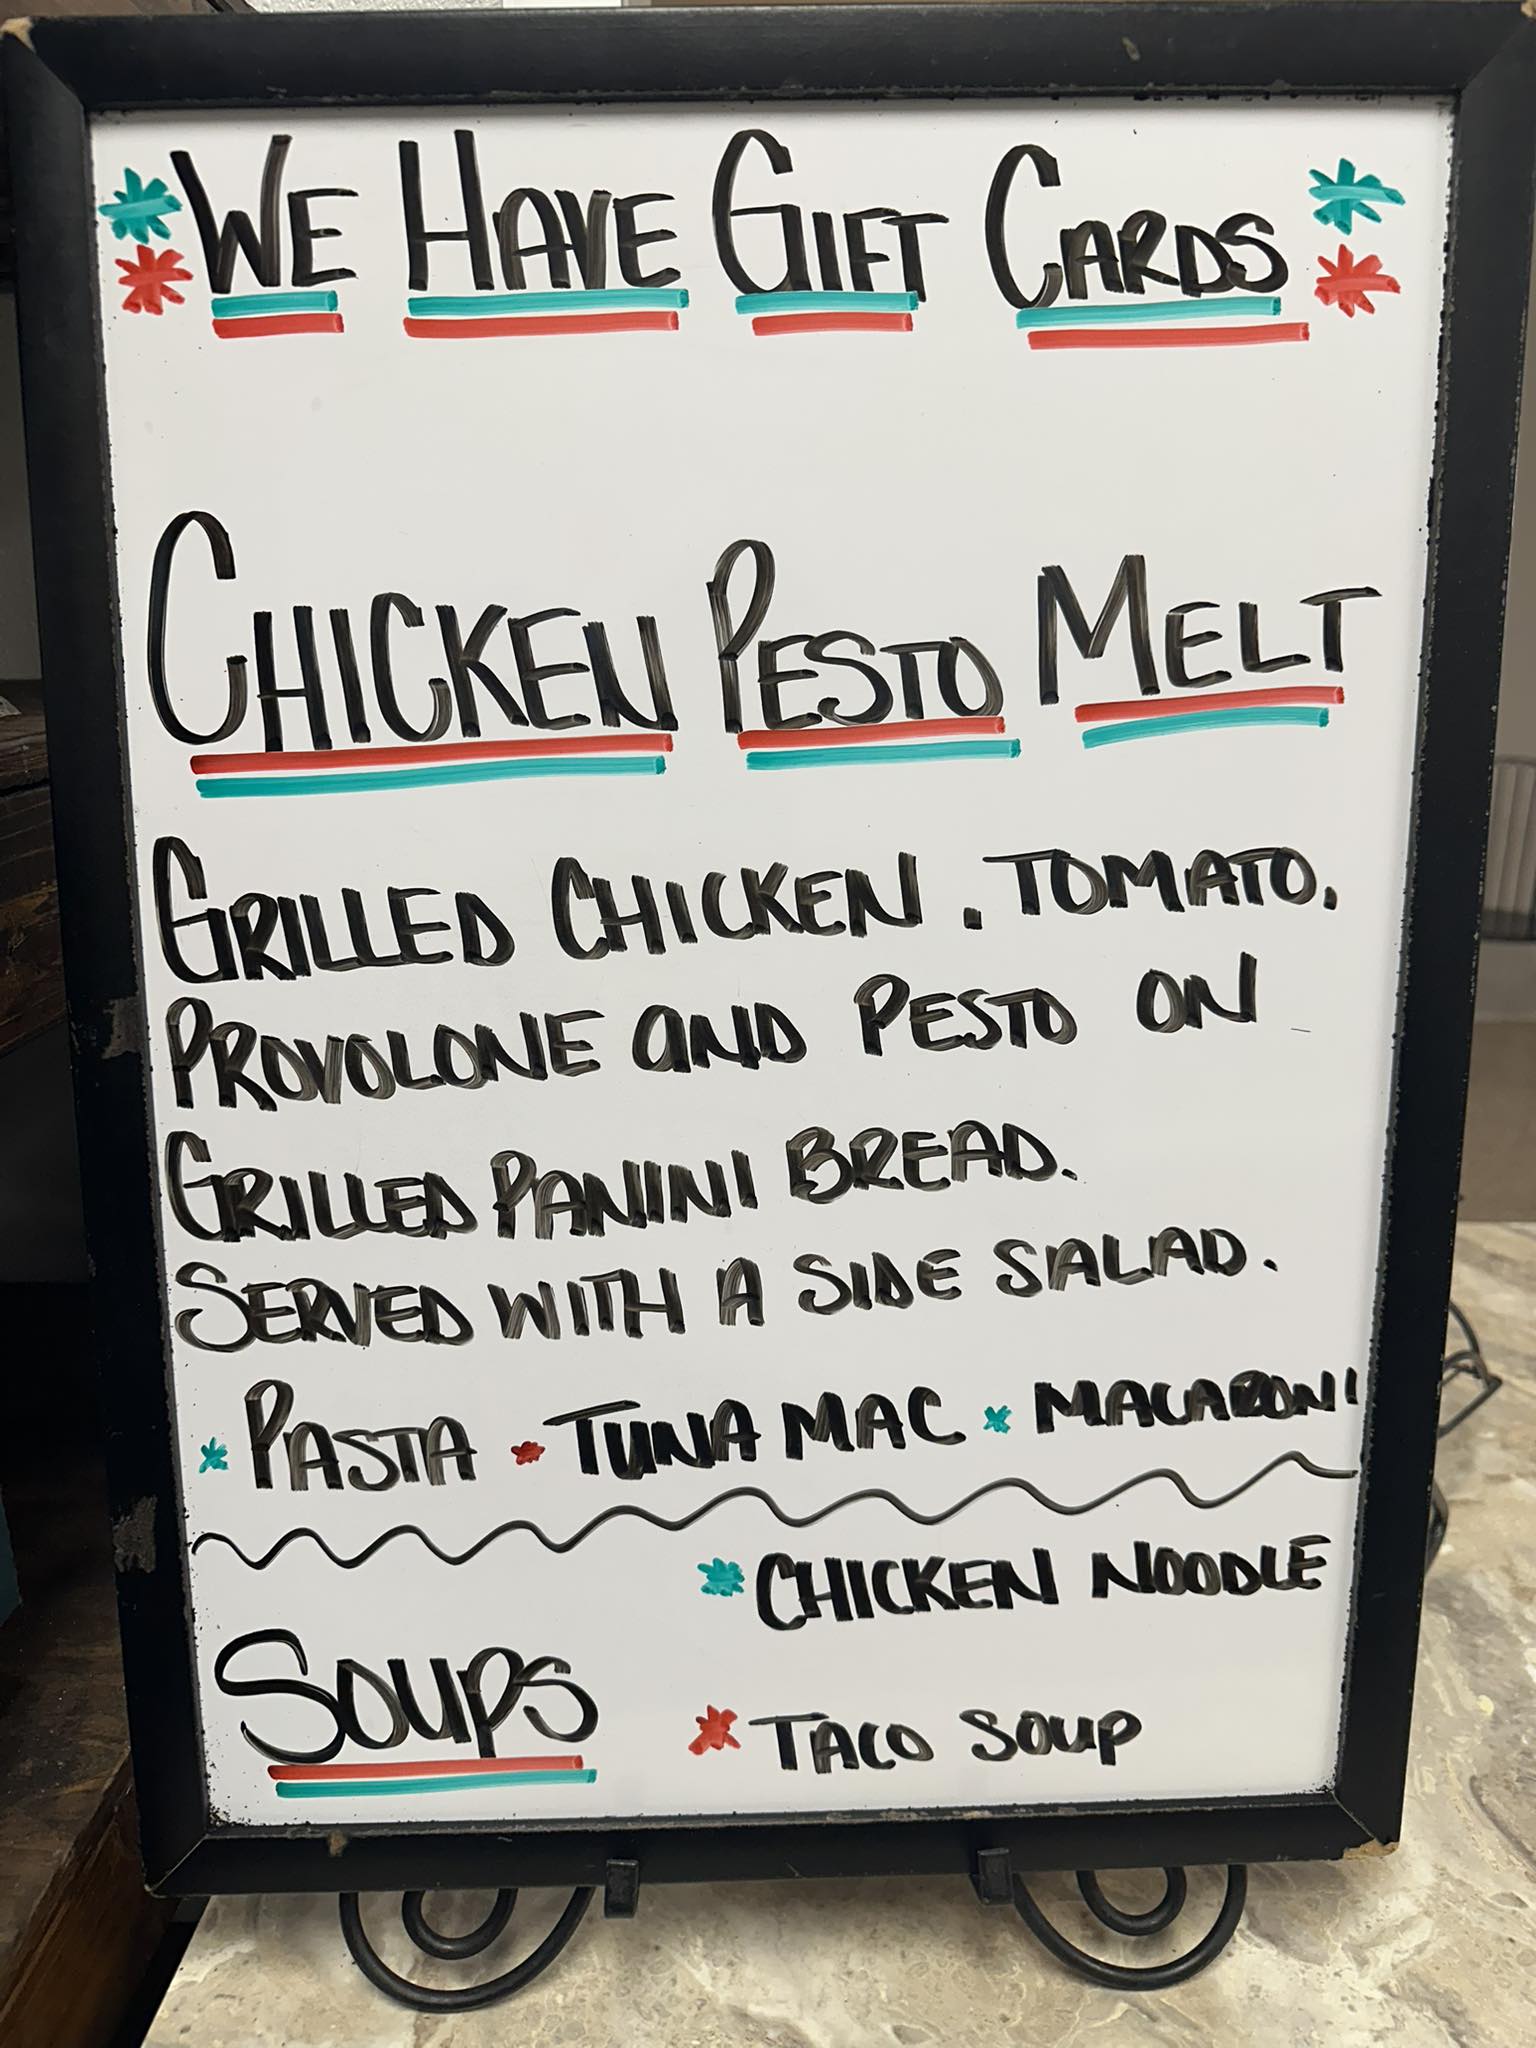 WE HAVE GIFT CARDS
CHICKEN PESTO MELT
GRILLED CHICKEN, TOMATO,
PROVOLONE AND PESTO ON
GRILLED PANINI BREAD.
SERVED WITH A SIDE SALAD.
* PASTA * TUNA MAC * MACARONI
SOUPS
* CHICKEN NOODLE
* TACO SOUP